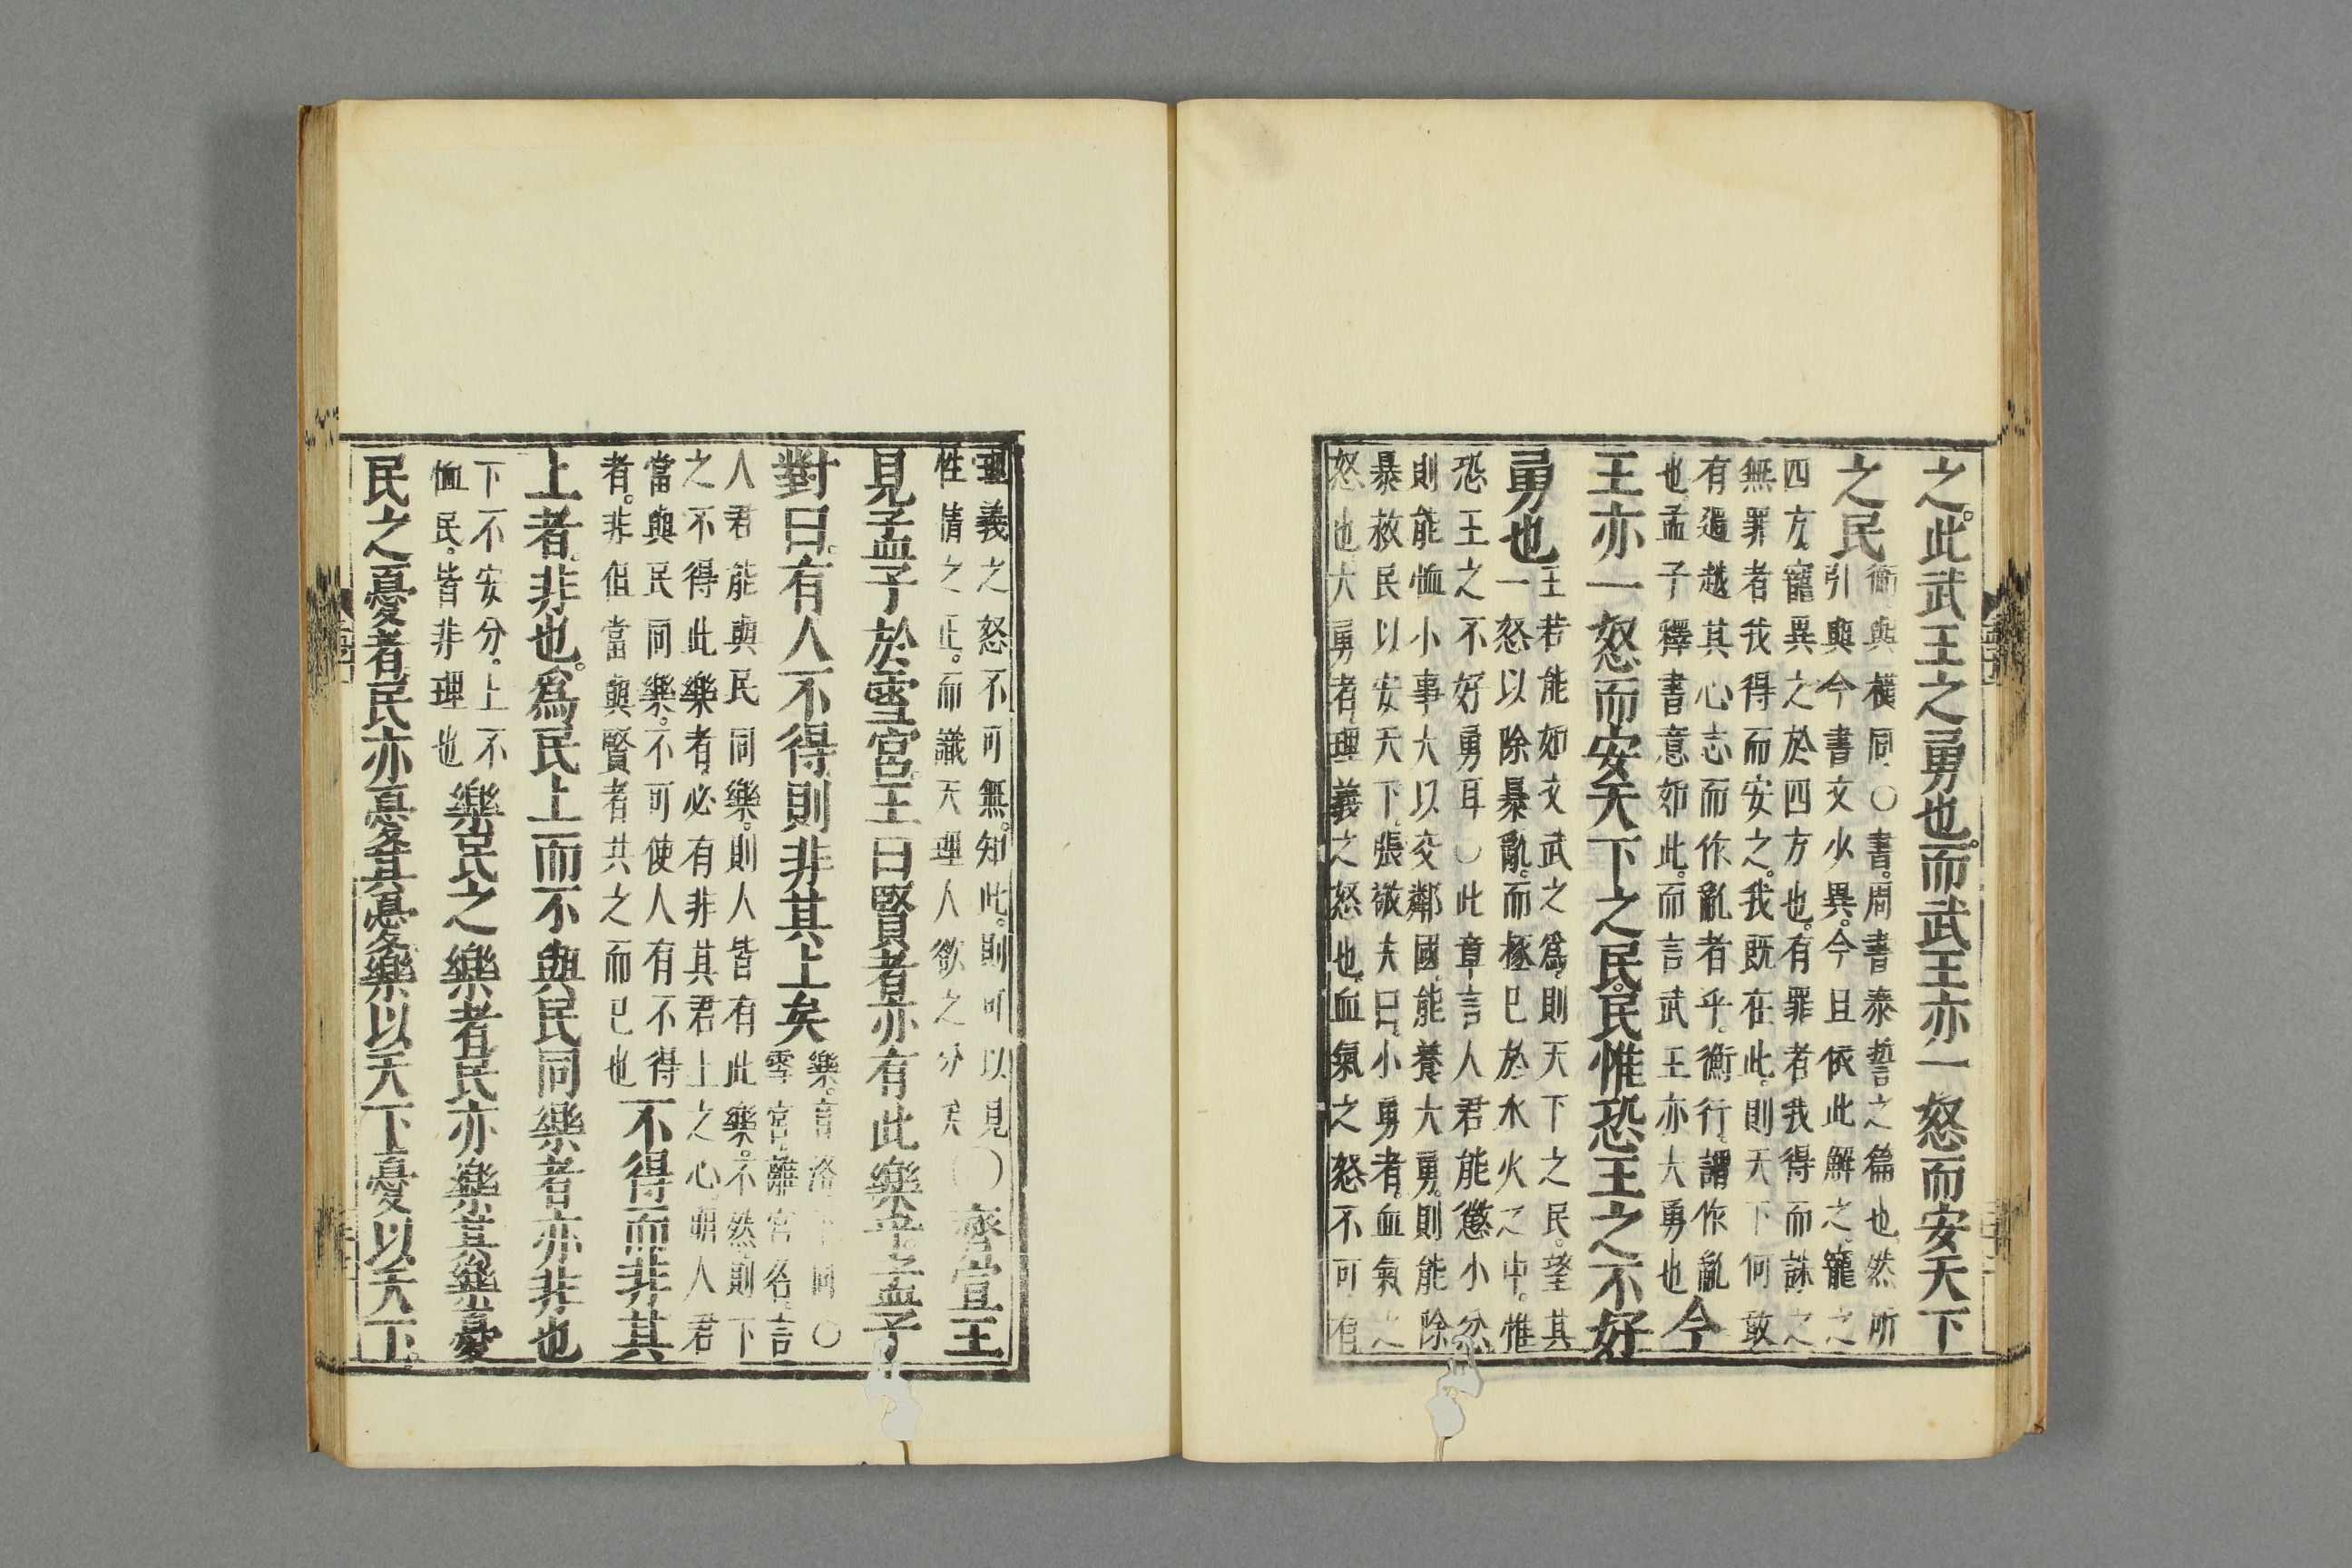 之。此武王之勇也。而武王亦一怒而安天下
之民
衡。與橫同。○書。周書泰誓之篇也。然所
引與今書文少異。今且依此解之。寵之
四方。寵異之於四方也。有罪者我得而誅之
無罪者我得而安之。我既在此。則天下何敢
有過越其心志而作亂者乎。衡行。謂作亂
也。孟子釋書意如此。而言武王亦大勇也
今
王亦一怒而安天下之民。民惟恐王之不好
勇也
王若能如文武之爲。則天下之民。望其
一怒以除暴亂。而拯已於水火之中。惟
恐王之不好勇耳○此章言人君能懲小忿
則能恤小事大以交鄰國。能養大勇。則能除
暴救民以安天下。張敬夫曰。小勇者。血氣之
怒也。大勇者。理義之怒也。血氣之怒不可有
理義之怒不可無。知此。則可以見
性情之正。而識天理人欲之分矣
○齊宣王
見孟子於雪宮。王曰賢者亦有此樂乎。孟子
對曰。有人不得。則非其上矣
樂。音洛下同○
雪宮離宮名。言
人君能與民同樂。則人皆有此樂。不然。則下
之不得此樂者。必有非其君上之心。明人君
當與民同樂。不可使人有不得
者。非但當與賢者共之而已也
不得而非其
上者。非也。爲民上而不與民同樂者亦非也
下不安分。上不
恤民。皆非理也
樂民之樂者民亦樂其樂憂
民之憂者民亦憂其憂樂以天下憂以天下。